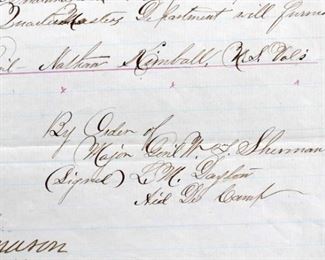 Quartermasters Department will furnis
Nathan Kimball, U.S. Vols
By Order of
Major Genl W. T. Sherman
(Signed) L. M. Dayton
Aid De Camp